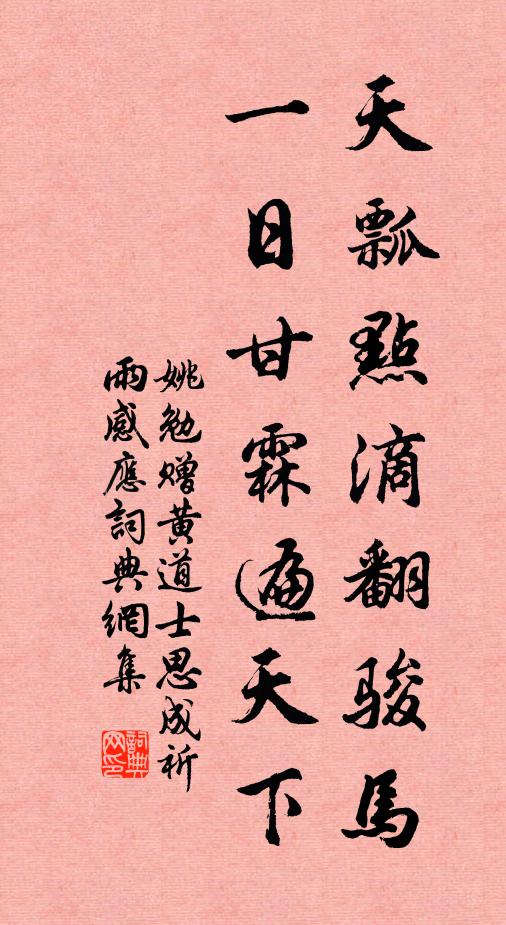 天瓢點滴翻駿馬
一日甘霖遍天下
姚勉贈黄道士思成祈
雨感應詞典網集
詞典
网印